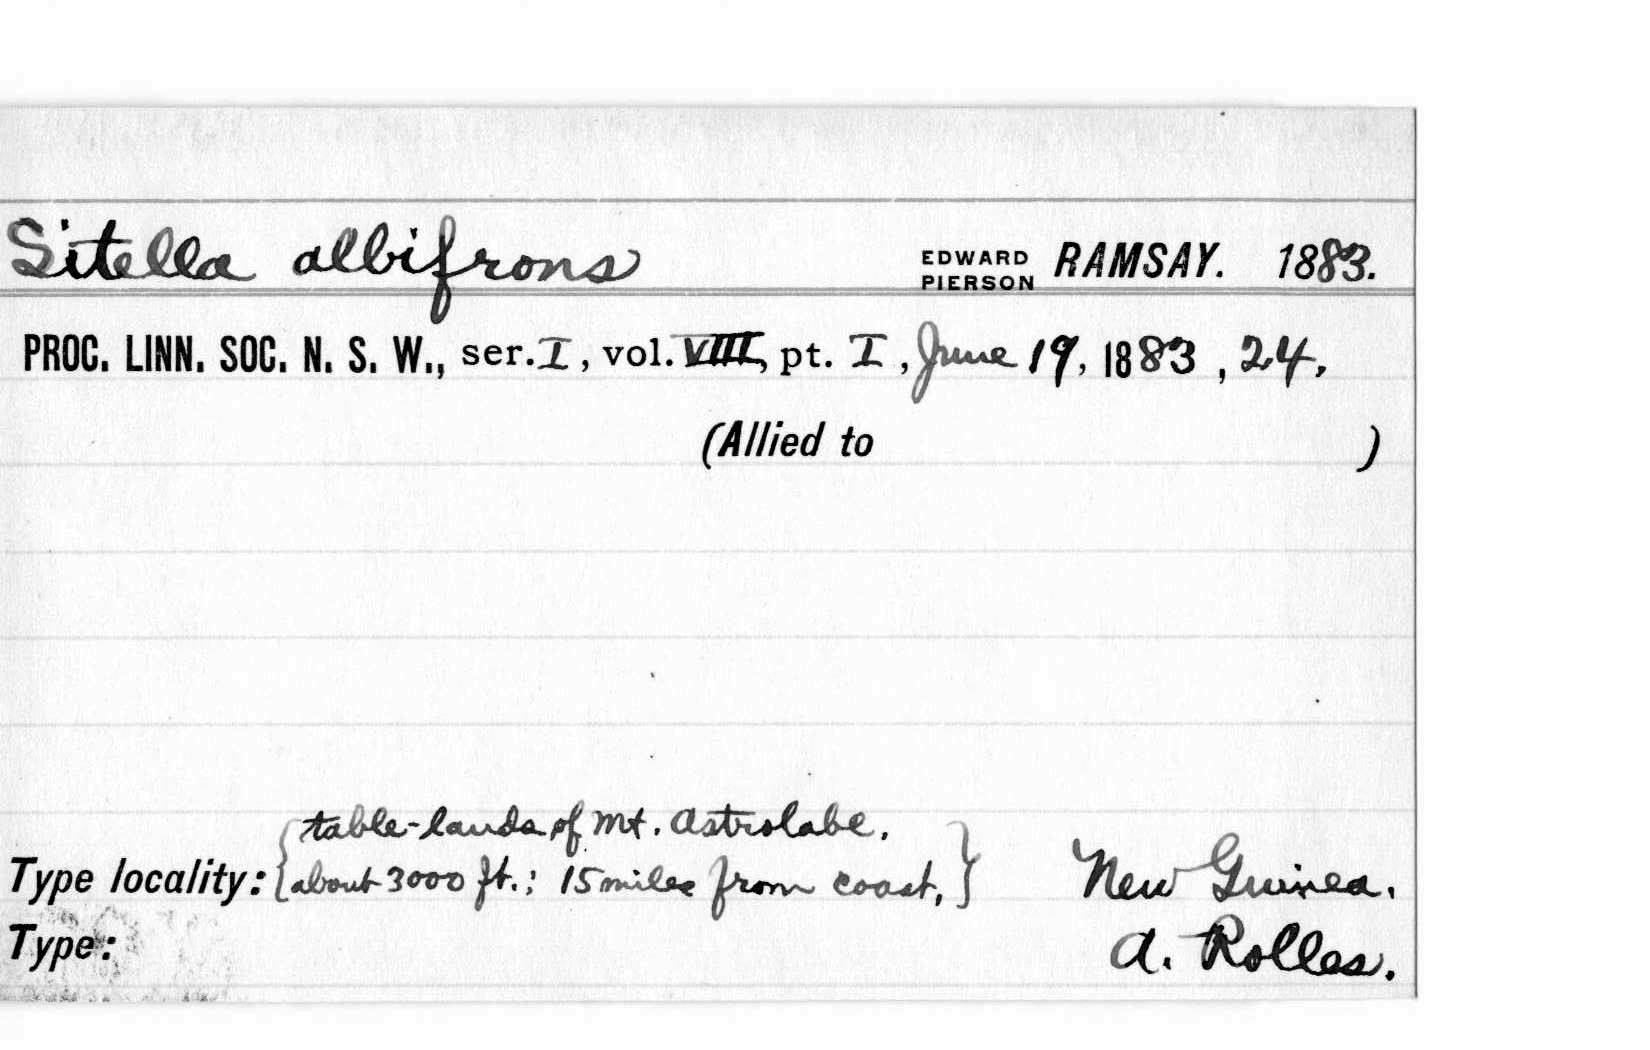 Sitella albifrons EDWARD PIERSON RAMSAY. 1883.
PROC. LINN. SOC. N. S. W., ser. I, vol. VIII, pt. I, June 19, 1883, 24.
(Allied to )
table-lands of Mt. Astrolabe.
Type locality: {about 3000 ft.; 15 miles from coast,} New Guinea.
Type: A. Rolles.